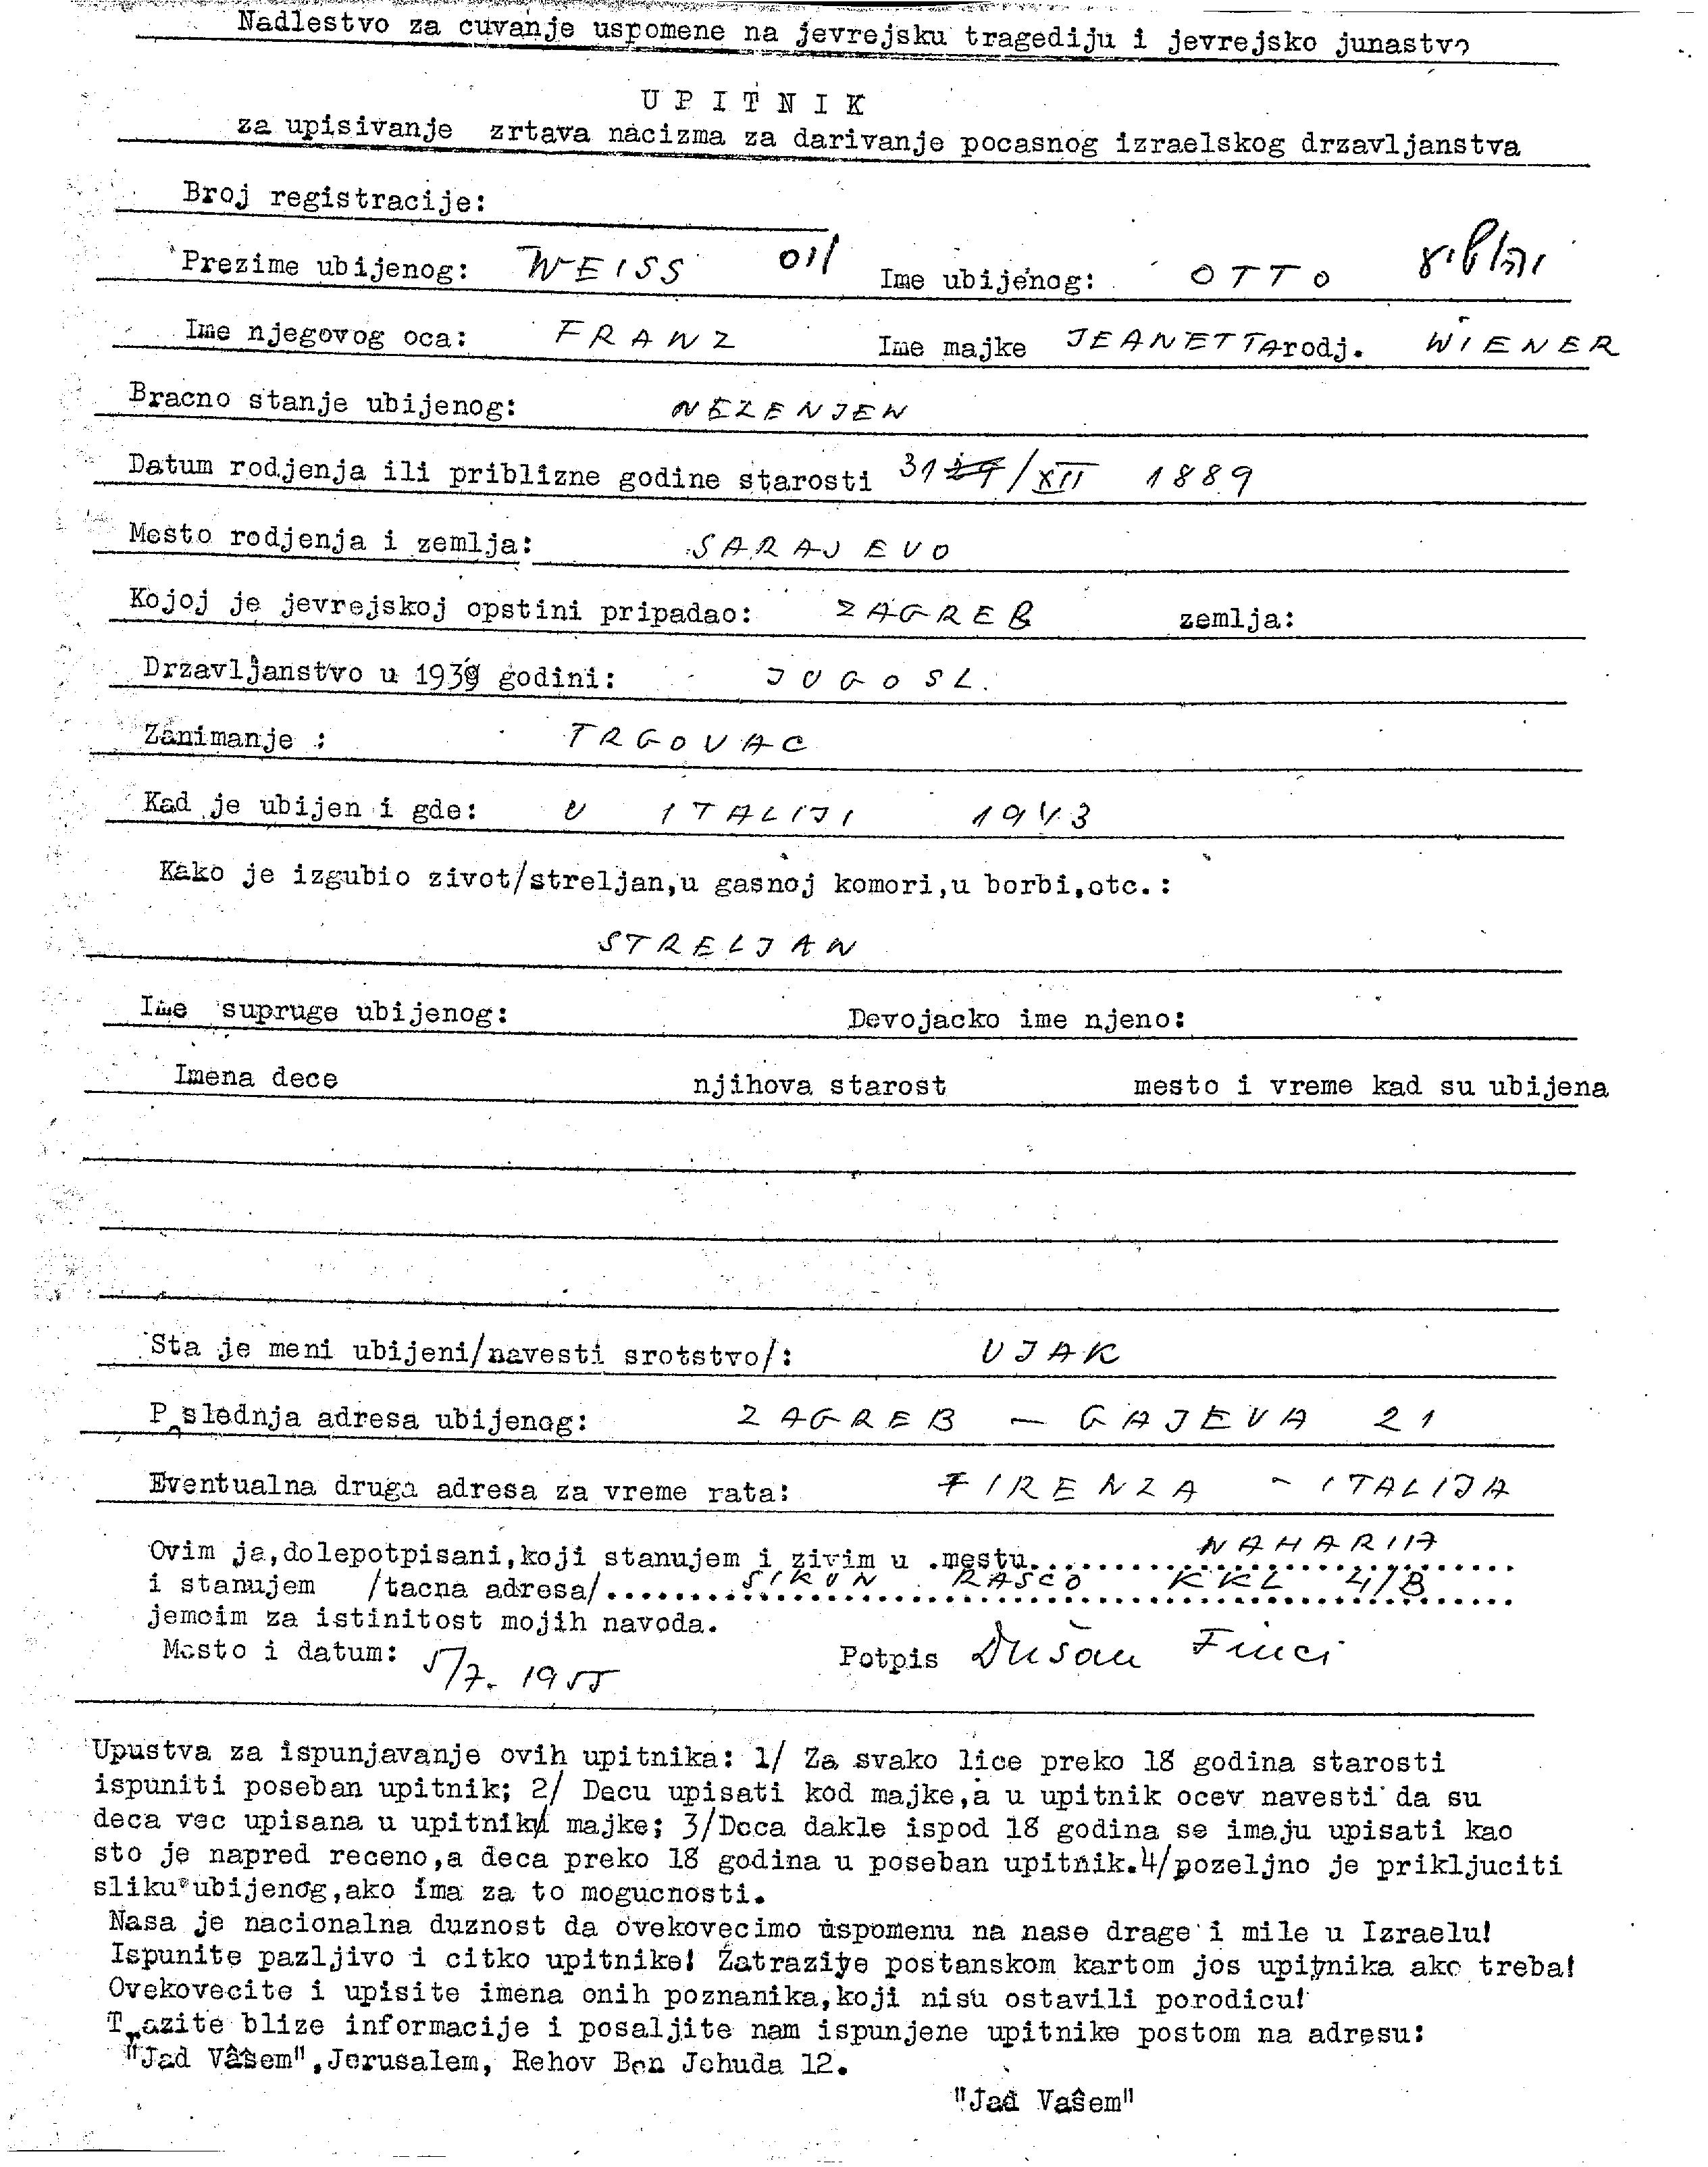 Nadlestvo za cuvanje uspomene na jevrejsku tragediju i jevrejsko junastvo
U P I T N I K
za upisivanje zrtava nacizma za darivanje pocasnog izraelskog drzavljanstva
Broj registracije:
Prezime ubijenog: WEISS Ime ubijenog: OTTO
Ime njegovog oca: FRANZ Ime majke JEANETTA rodj. WIENER
Bracno stanje ubijenog: NEZENJEN
Datum rodjenja ili priblizne godine starosti 31/XII 1889
Mesto rodjenja i zemlja: SARAJEVO
Kojoj je jevrejskoj opstini pripadao: ZAGREB zemlja:
Drzavljanstvo u 1939 godini: JUGOSL.
Zanimanje : TRGOVAC
Kad je ubijen i gde: U ITALIJI 1943
Kako je izgubio zivot/streljan,u gasnoj komori,u borbi,etc.:
STRELJAN
Ime supruge ubijenog: Devojacko ime njeno:
Imena dece njihova starost mesto i vreme kad su ubijena
Sta je meni ubijeni/navesti srotstvo/: UJAK
Poslednja adresa ubijenog: ZAGREB — GAJEVA 21
Eventualna druga adresa za vreme rata: FIRENZA - ITALIJA
Ovim ja,dolepotpisani,koji stanujem i zivim u .mestu... NAHARIJA
i stanujem /tacna adresa/... SIKUN RASCO KKL 4/B
jemcim za istinitost mojih navoda.
Mesto i datum: 5/7. 1955 Potpis Dušan Finci
Upustva za ispunjavanje ovih upitnika: 1/ Za svako lice preko 18 godina starosti
ispuniti poseban upitnik; 2/ Decu upisati kod majke,a u upitnik ocev navesti da su
deca vec upisana u upitnik majke; 3/Deca dakle ispod 18 godina se imaju upisati kao
sto je napred receno,a deca preko 18 godina u poseban upitnik.4/pozeljno je prikljuciti
sliku ubijenog,ako ima za to mogucnosti.
Nasa je nacionalna duznost da ovekovecimo uspomenu na nase drage i mile u Izraelu!
Ispunite pazljivo i citko upitnike! Zatrazite postanskom kartom jos upitnika ako treba!
Ovekovecite i upisite imena onih poznanika,koji nisu ostavili porodicu!
Trazite blize informacije i posaljite nam ispunjene upitnike postom na adresu:
"Jad Vašem",Jerusalem, Rehov Ben Jehuda 12.
"Jad Vašem"